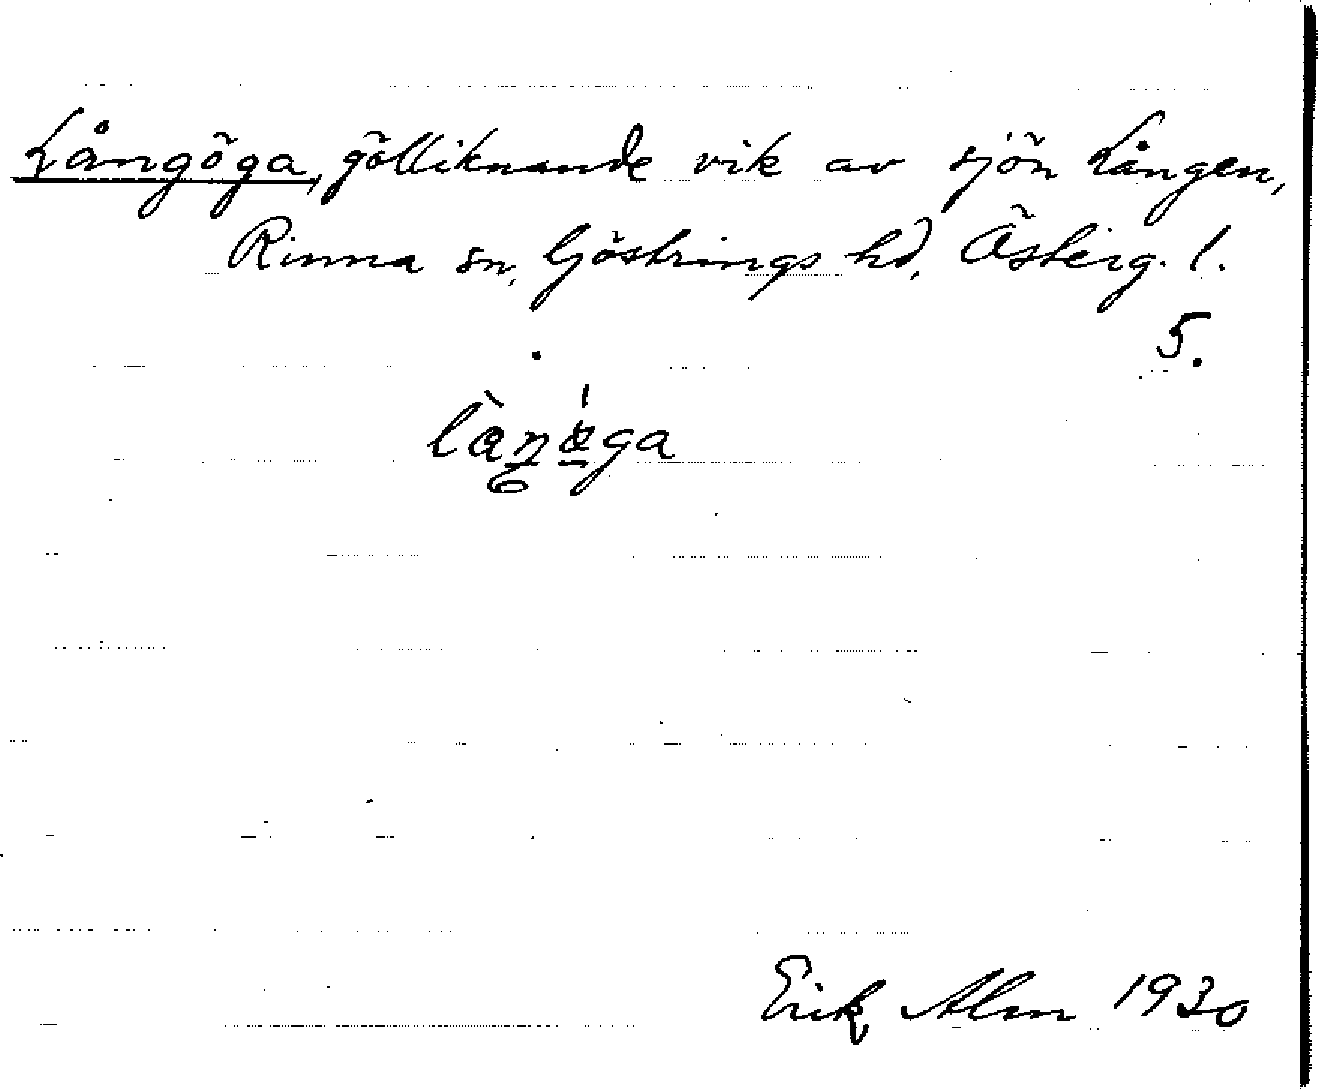 Långöga, gölliknande vik av sjön Lången,
Rinna sn, Göstrings hd, Östergl.
5.
Erik Alm 1930